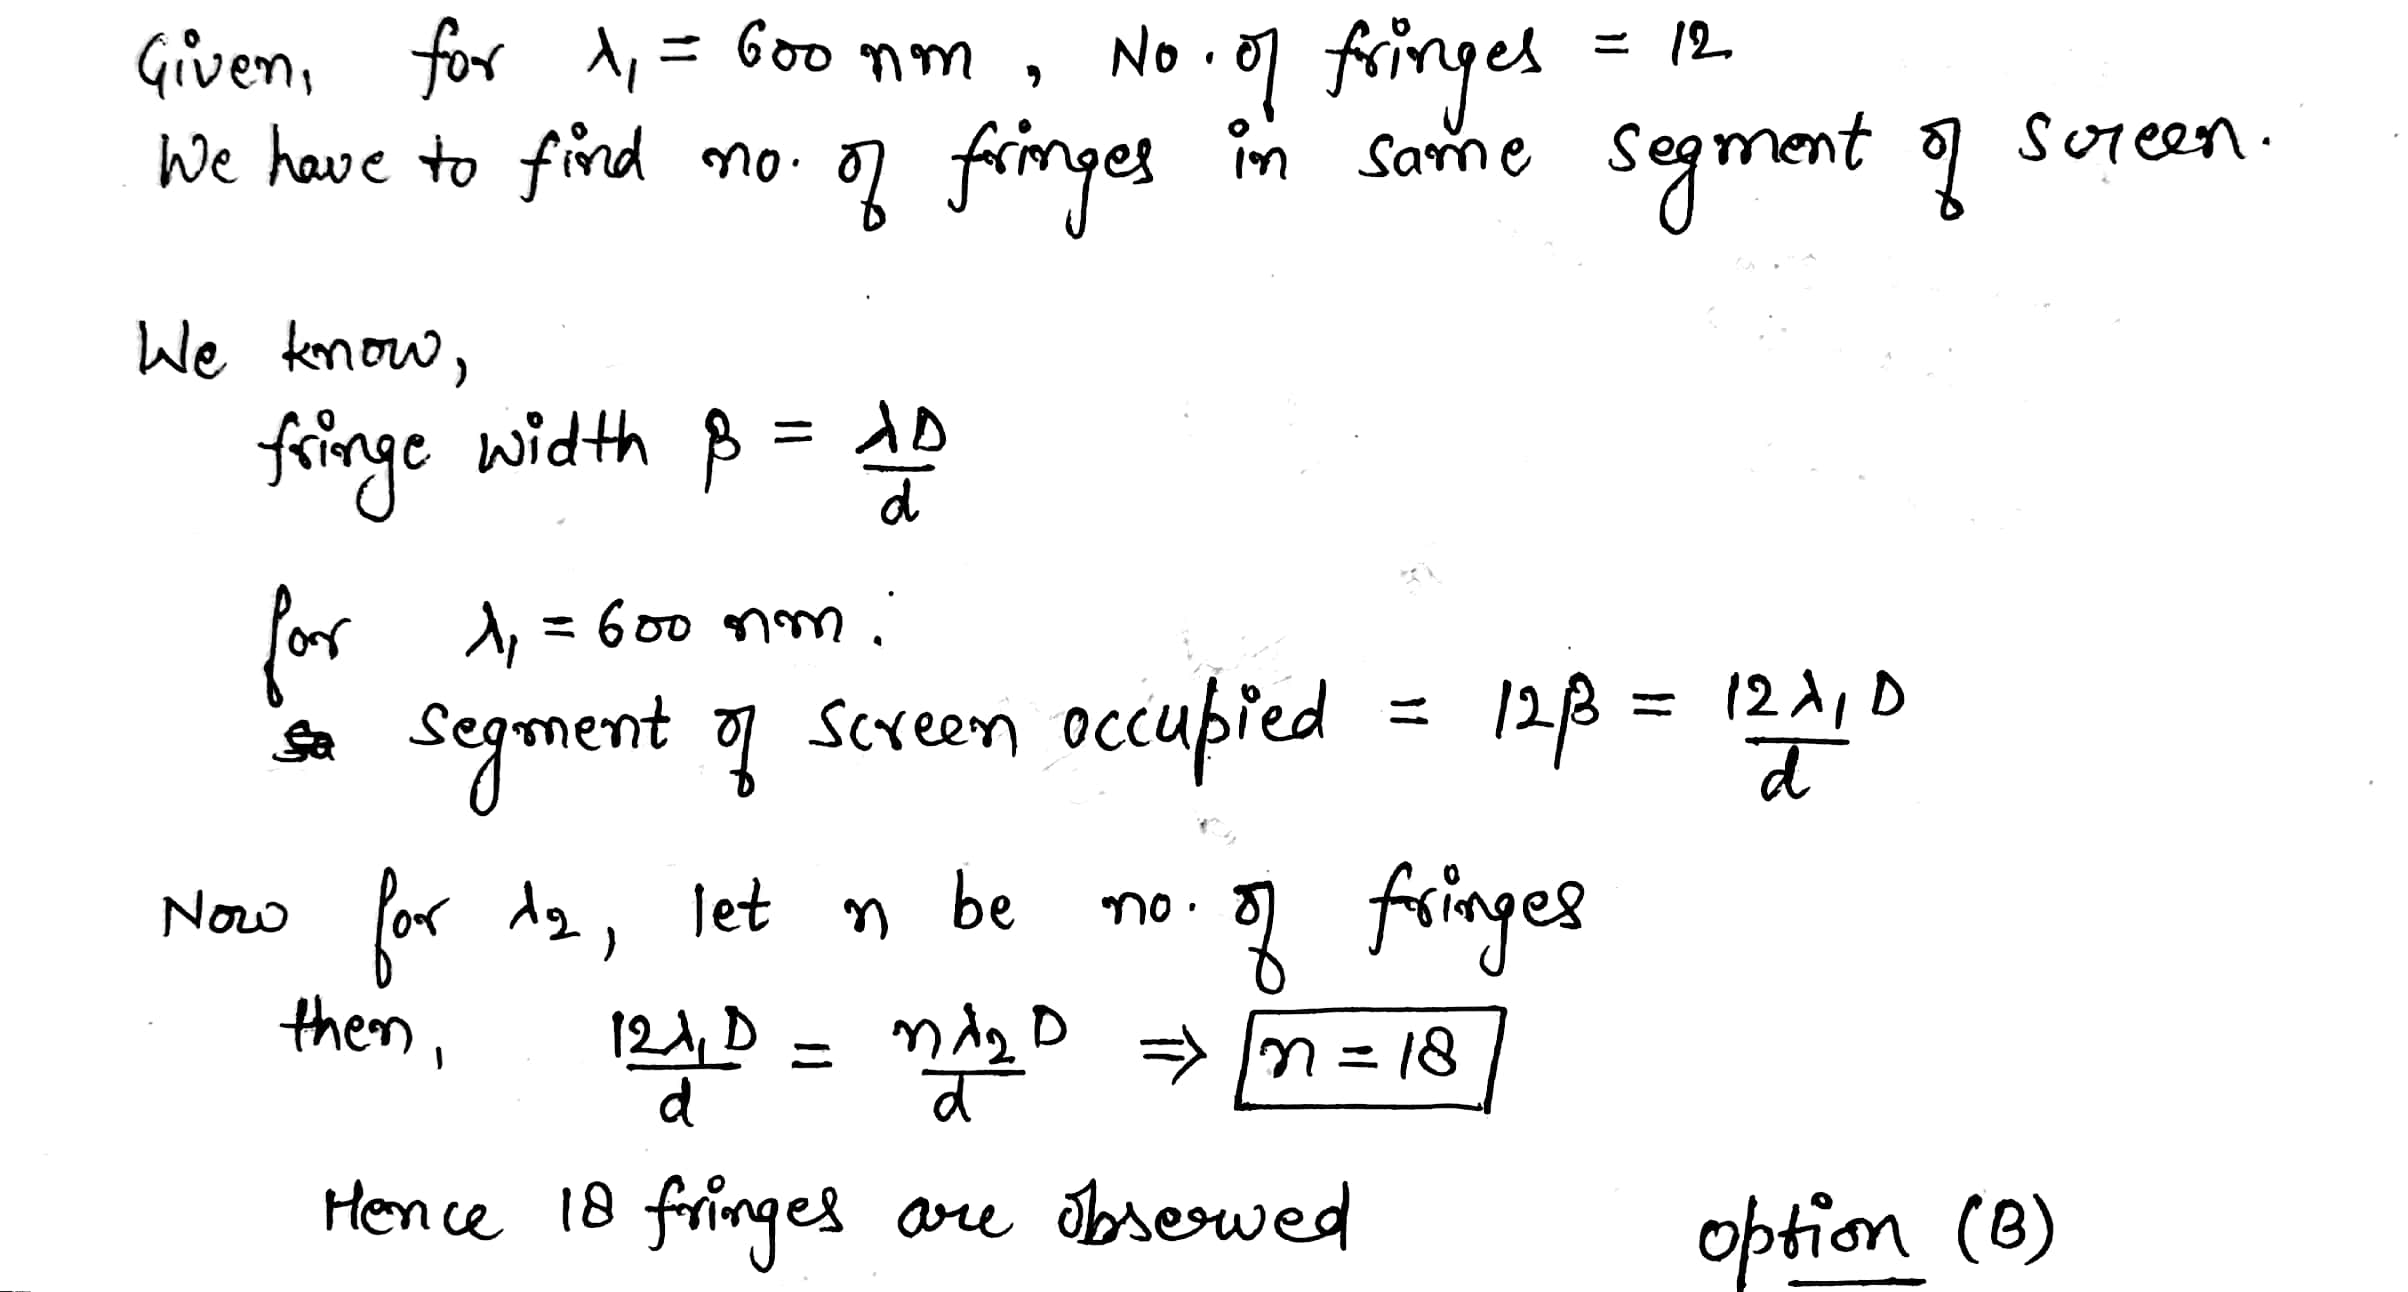 Given, for λ₁ = 600 nm, No. of fringes = 12
We have to find no. of fringes in same segment of screen.
We know,
fringe width β = λD/d
for λ₁ = 600 nm:
segment of screen occupied = 12β = 12λ₁D/d
Now for λ₂, let n be no. of fringes
then, 12λ₁D/d = nλ₂D/d ⇒ n = 18
Hence 18 fringes are observed
option (B)